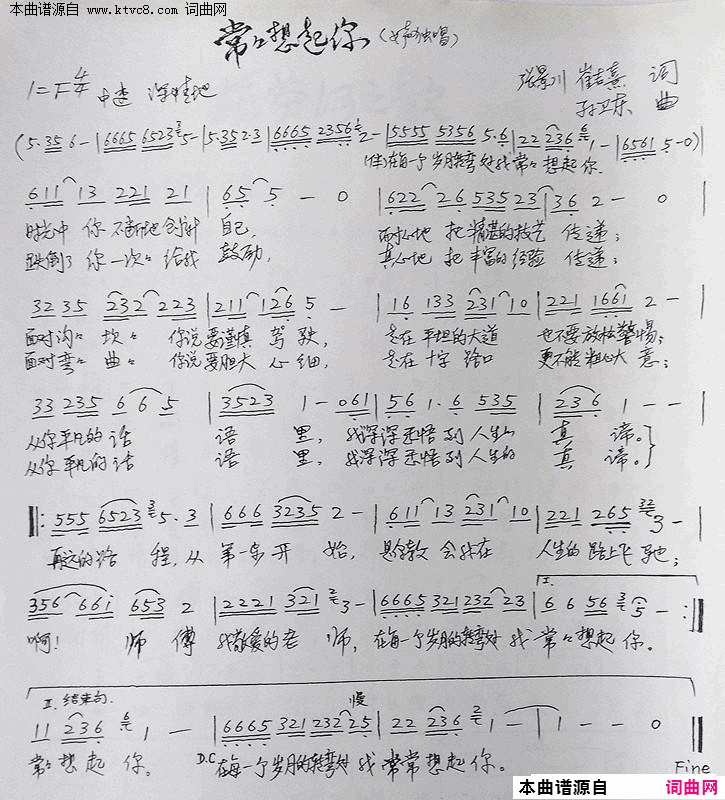 本曲谱源自 词曲网
www.ktvc8.com
常常想起你(女声独唱)
1=F 4/4 中速 深情地
张景川 崔吉熹 词
孙卫东 曲
(5·35 6 - | 6665 6523 5 - | 5·35 2·3 | 6665 2356 2 - | 5555 5356 5·6 | 22 236 1 - | 6561 5 - 0)
(伴)在每一个岁月转弯处我常常想起你.
611 13 221 21 | 65 5 - 0 | 622 26 53523 | 36 2 - 0 |
时光中 你不断地创新 自己, 耐心地 把精湛的技艺 传递;
跌倒了 你一次次给我 鼓励, 真心地 把丰富的经验 传递;
32 35 232 223 | 211 126 5 - | 16 133 231 10 | 221 1661 2 - |
面对沟沟 坎坎 你说要谨慎 驾驶, 走在平坦的大道 也不要放松警惕;
面对弯弯 曲曲 你说要胆大 心细, 走在十字路口 更不能粗心大意;
33 235 6 6 5 | 3523 1 - 061 | 56 1·6 535 | 236 1 - - |
从你平凡的话 语 里, 我深深悉悟到人生的 真 谛。
从你平凡的话 语 里, 我深深悉悟到人生的 真 谛。
555 6523 5·3 | 666 3235 2 - | 611 13 231 10 | 221 265 3 - |
再远的路 程,从 第一步开 始, 是你教会我在 人生的路上飞驰;
356 661 653 2 | 2221 321 3 - | 6665 321 232 23 | I. 6 6 56 5 - :||
啊! 师 傅 我敬爱的老 师, 在每一个岁月的转弯处 我 常常想起你。
II. 结束句. 慢
11 236 1 - | 6665 321 232 25 | 22 236 1 - | 1 - - 0 ||
常常想起 你。 D.C 在每一个岁月的转弯处 我 常常想起你。 Fine
本曲谱源自 词曲网